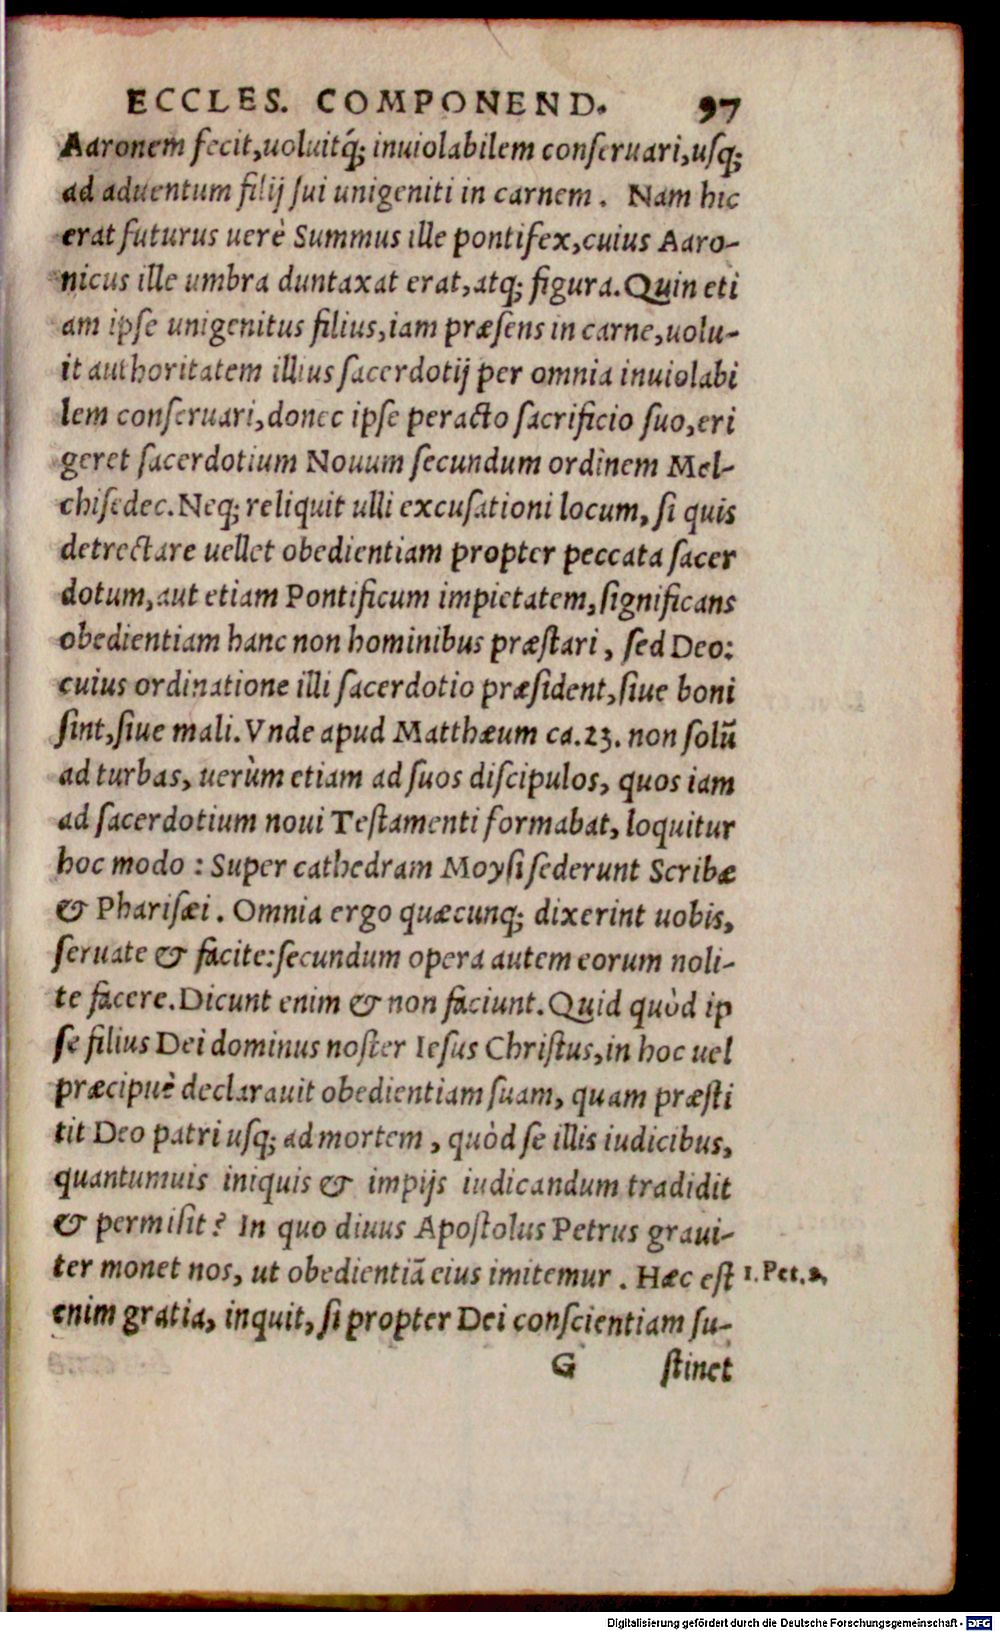 ECCLES. COMPONEND. 97
Aaronem fecit, uoluitq́; inuiolabilem conſeruari, uſq;
ad aduentum filij ſui unigeniti in carnem. Nam hic
erat futurus uerè Summus ille pontifex, cuius Aaro-
nicus ille umbra duntaxat erat, atq; figura. Quin eti
am ipſe unigenitus filius, iam præſens in carne, uolu-
it authoritatem illius ſacerdotij per omnia inuiolabi
lem conſeruari, donec ipſe peracto ſacrificio ſuo, eri
geret ſacerdotium Nouum ſecundum ordinem Mel-
chiſedec. Neq; reliquit ulli excuſationi locum, ſi quis
detrectare uellet obedientiam propter peccata ſacer
dotum, aut etiam Pontificum impietatem, ſignificans
obedientiam hanc non hominibus præſtari, ſed Deo:
cuius ordinatione illi ſacerdotio præſident, ſiue boni
ſint, ſiue mali. Vnde apud Matthæum ca. 23. non ſolũ
ad turbas, uerùm etiam ad ſuos diſcipulos, quos iam
ad ſacerdotium noui Teſtamenti formabat, loquitur
hoc modo: Super cathedram Moyſi ſederunt Scribæ
& Phariſæi. Omnia ergo quæcunq; dixerint uobis,
ſeruate & facite: ſecundum opera autem eorum noli-
te facere. Dicunt enim & non faciunt. Quid quòd ip
ſe filius Dei dominus noſter Ieſus Chriſtus, in hoc uel
præcipuè declarauit obedientiam ſuam, quam præſti
tit Deo patri uſq; ad mortem, quòd ſe illis iudicibus,
quantumuis iniquis & impijs iudicandum tradidit
& permiſit? In quo diuus Apoſtolus Petrus graui-
ter monet nos, ut obedientiã eius imitemur. Hæc eſt 1. Pet. 2.
enim gratia, inquit, ſi propter Dei conſcientiam ſu-
G ſtinet
Digitalisierung gefördert durch die Deutsche Forschungsgemeinschaft - DFG